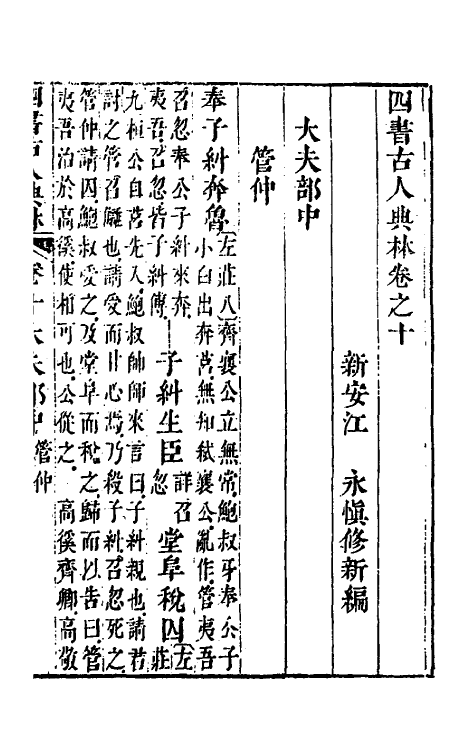 四書古人典林卷之十
新安江　永慎修新編
大夫部中
管仲
奉子糾奔魯 左莊八齊襄公立無常鮑叔牙奉公子
小白出奔莒無知弒襄公亂作管夷吾
召忽奉公子糾來奔
夷吾召忽皆子糾傅 子糾生臣 詳召忽 堂阜稅囚 左莊
九桓公自莒先入鮑叔帥師來言曰子糾親也請君
討之管召讎也請受而甘心焉乃殺子糾召忽死之
管仲請囚鮑叔受之及堂阜而稅之歸而以告曰管
夷吾治於高傒使相可也公從之　高傒齊卿高敬
四書古人典林 卷十大夫部中 管仲